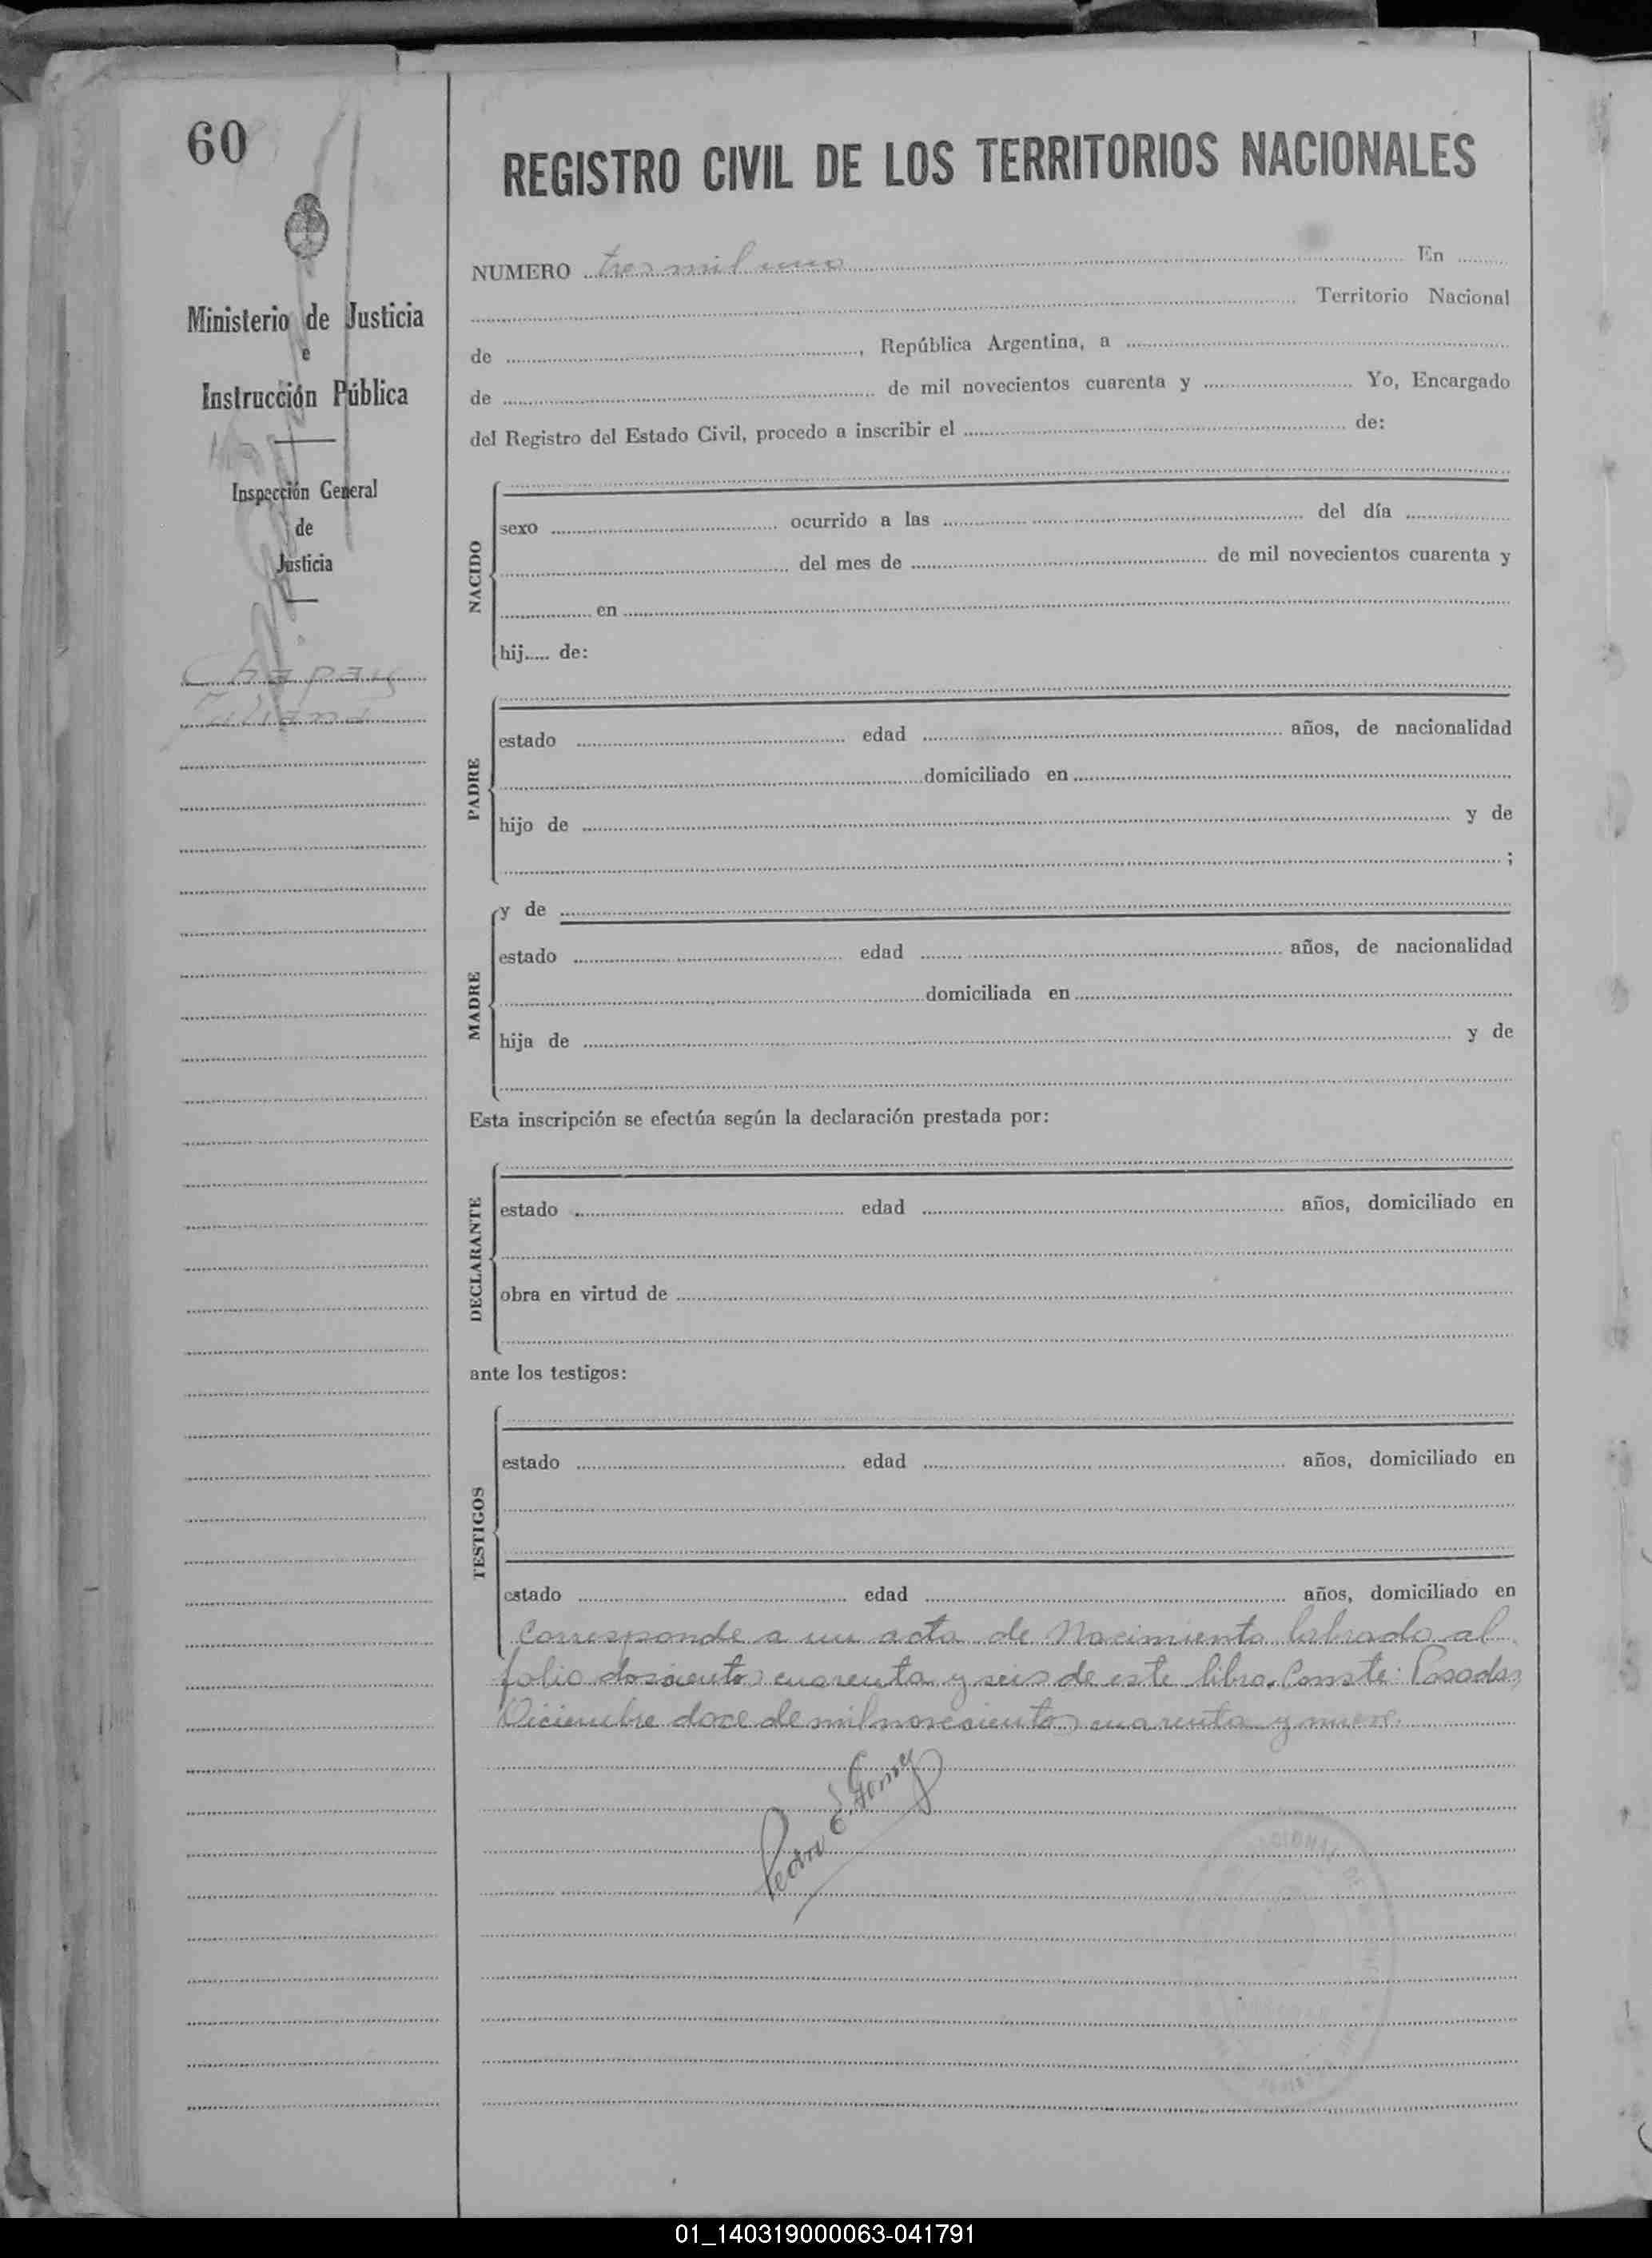 60
REGISTRO CIVIL DE LOS TERRITORIOS NACIONALES
Ministerio de Justicia
e
Instrucción Pública
Inspección General
de
Justicia
Chapay
Juliana
NUMERO tres mil uno En
Territorio Nacional
de , República Argentina, a
de de mil novecientos cuarenta y Yo, Encargado
del Registro del Estado Civil, procedo a inscribir el de:
NACIDO
sexo ocurrido a las del día
del mes de de mil novecientos cuarenta y
en
hij..... de:
PADRE
estado edad años, de nacionalidad
domiciliado en
hijo de y de
;
MADRE
y de
estado edad años, de nacionalidad
domiciliada en
hija de y de
Esta inscripción se efectúa según la declaración prestada por:
DECLARANTE
estado edad años, domiciliado en
obra en virtud de
ante los testigos:
TESTIGOS
estado edad años, domiciliado en
estado edad años, domiciliado en
Corresponde a un acta de Nacimiento labrada al
folio doscientos cuarenta y seis de este libro. Conste: Posadas,
Diciembre doce de mil novecientos cuarenta y nueve.
Pedro E. Gomez
01_140319000063-041791